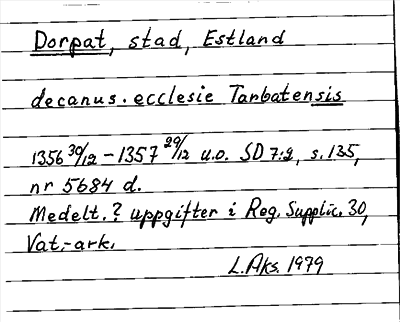 Dorpat, stad, Estland
decanus. ecclesie Tarbatensis
1356 30/12 - 1357 29/12 u.o. SD 7:2, s. 135,
nr 5684 d.
Medelt.? uppgifter i Reg. Supplic. 30,
Vat.-ark.
L. Aks. 1979